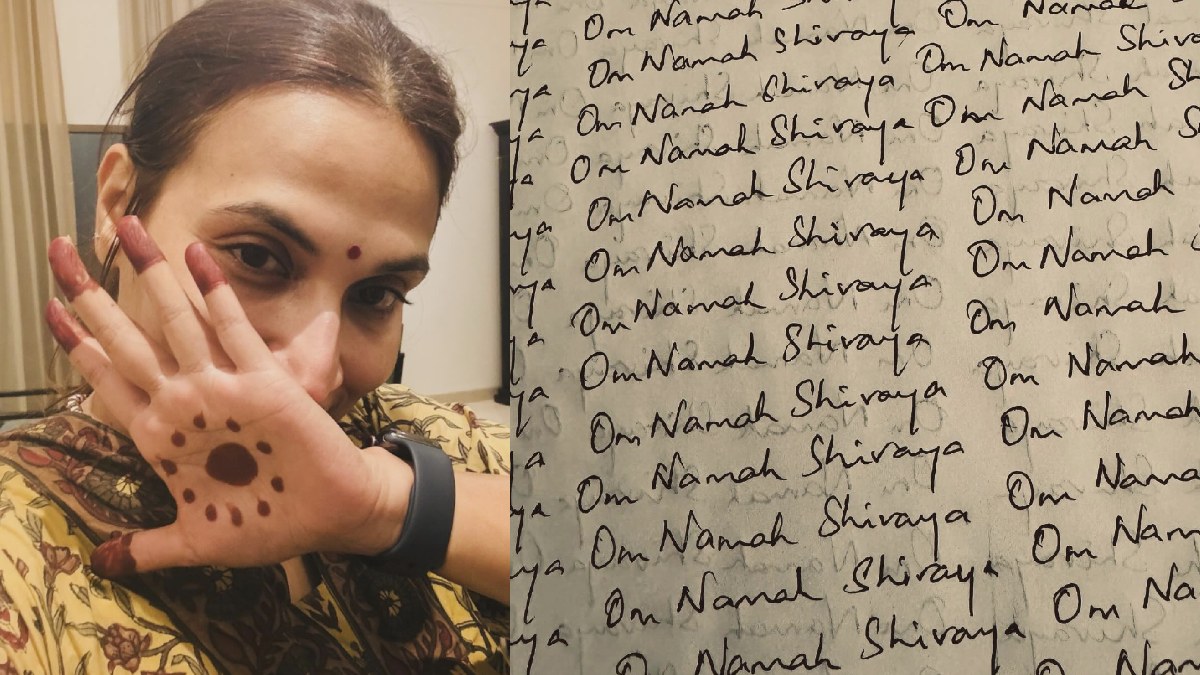 ya Om Namah Shivaya
ya Om Namah Shivaya Om Namah
ya Om Namah Shivaya Om Namah Shiva
ya Om Namah Shivaya Om Namah Sh
ya Om Namah Shivaya Om Namah S
ya Om Namah Shivaya Om Namah
ya Om Namah Shivaya Om Namah
ya Om Namah Shivaya Om Namah
ya Om Namah Shivaya Om Namah
a Om Namah Shivaya Om Namah
ya Om Namah Shivaya Om Nama
ya Om Namah Shivaya Om Nam
ya Om Namah Shivaya Om Na
Om Nam